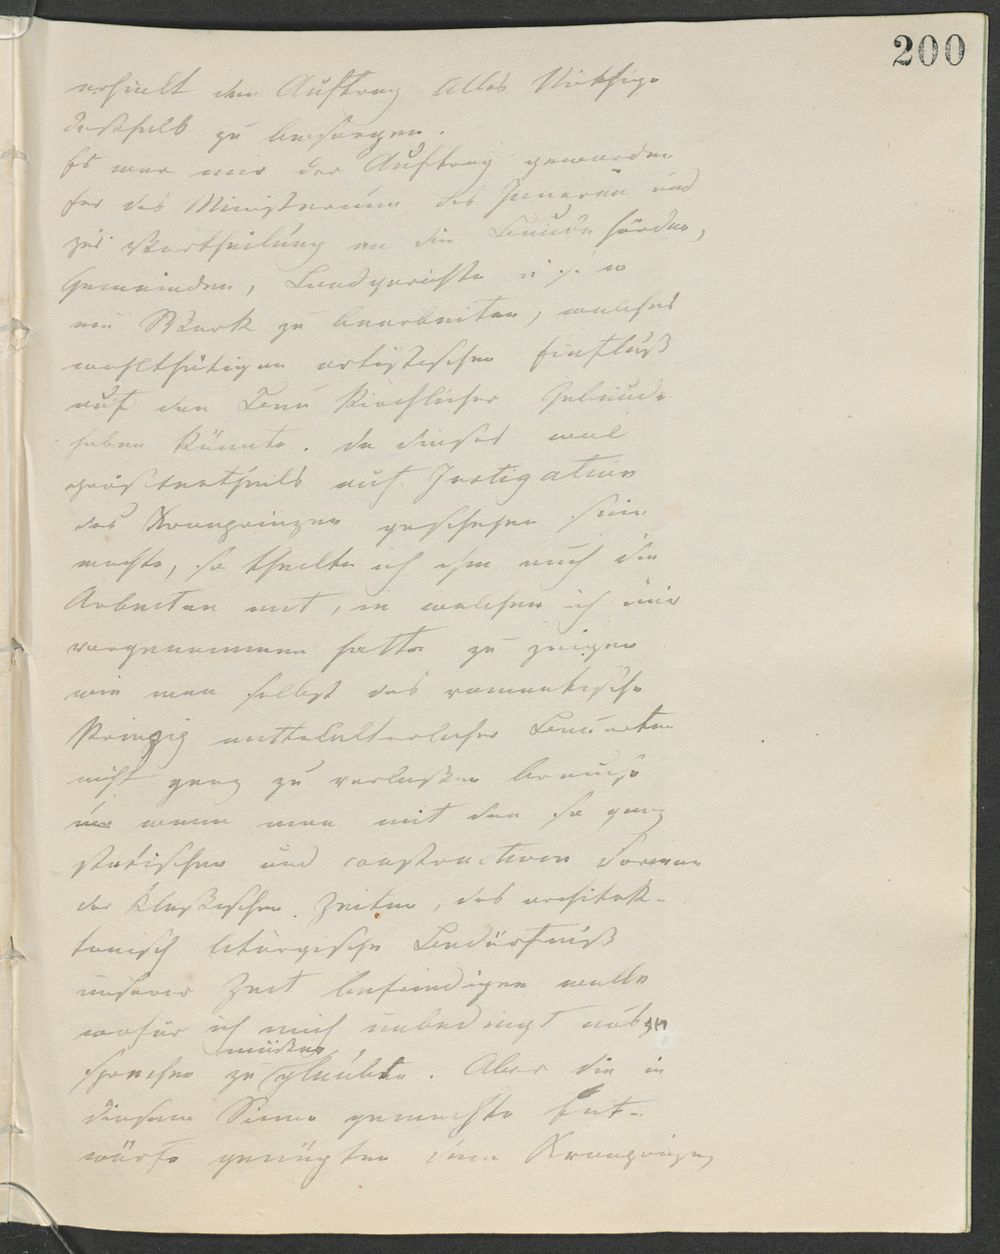 200
erhielt den Auftrag Alles Nöthige
deßhalb zu besorgen.
Es war mir der Auftrag geworden
für das Ministerium des Inneren und
zur Vertheilung an die Baubehörden,
Gemeinden, Landgerichte u. s. w
ein Werk zu bearbeiten, welches
wohlthätigen artistischen Einfluß
auf den Bau kirchlicher Gebäude
haben könnte. da dieses wol
größtentheils auf Instigation
des Kronprinzen geschehen sein
mochte, so theilte ich ihm auch die
Arbeiten mit, in welchen ich mir
vorgenommen hatte zu zeigen
wie man selbst das romantische
Prinzip mittelalterlicher Bauarten
nicht ganz zu verlaßen brauche
wenn man mit den so ganz
statischen und constructiven Formen
der klaßischen Zeiten, das architek-
tonisch liturgische Bedürfniß
unserer Zeit befriedigen wolle
wofür ich mich unbedingt aus
sprechen zu müßen glaubte. Aber die in
diesem Sinne gemachte Ent-
würfe genügten dem Kronprinzen